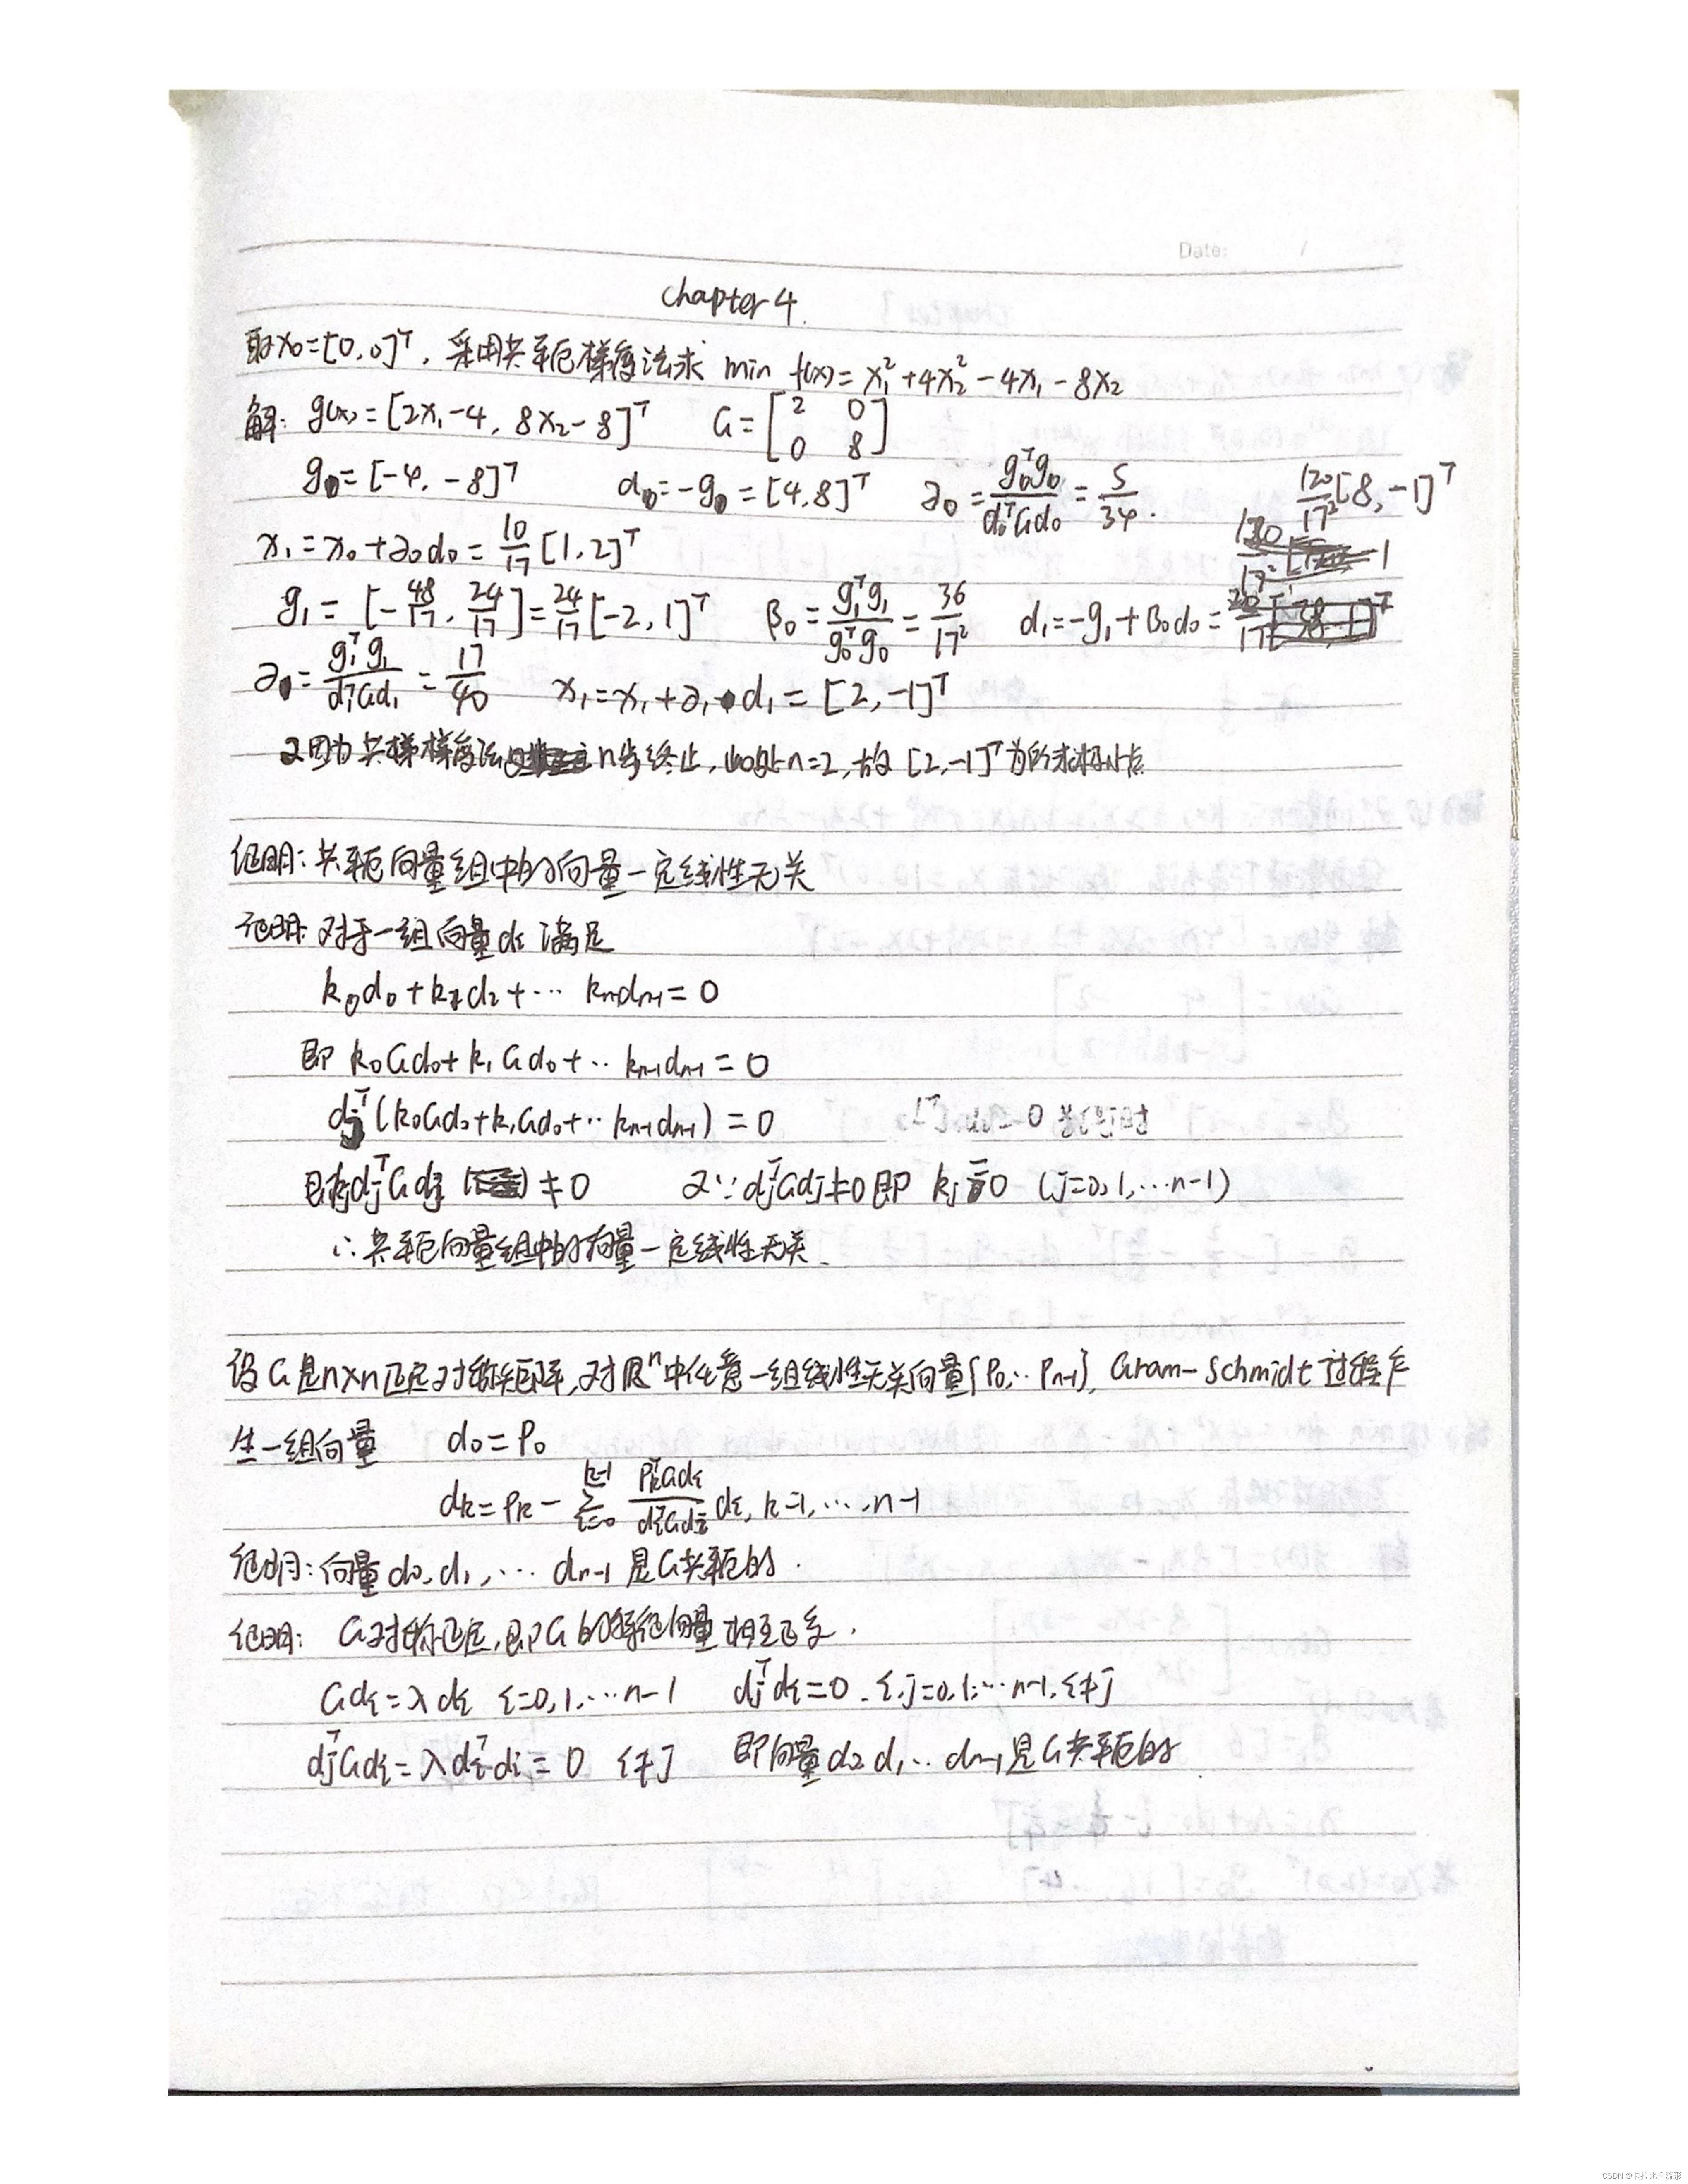 Date: /
Chapter 4.
取x₀=[0,0]ᵀ, 采用共轭梯度法求 min f(x)=x₁²+4x₂²-4x₁-8x₂
解: g(x)=[2x₁-4, 8x₂-8]ᵀ G=[2 0; 0 8]
g₀=[-4, -8]ᵀ d₀=-g₀=[4,8]ᵀ ∂₀=g₀ᵀg₀/d₀ᵀGd₀=5/34. 120/17²[8,-1]ᵀ
x₁=x₀+∂₀d₀=10/17[1,2]ᵀ
g₁=[-48/17, 24/17]=24/17[-2,1]ᵀ β₀=g₁ᵀg₁/g₀ᵀg₀=36/17² d₁=-g₁+β₀d₀=
∂=g₁ᵀg₁/d₁ᵀGd₁=17/40 x₁=x₁+∂₁d₁=[2,-1]ᵀ
又因为共梯梯度法n步终止, 此处n=2, 故[2,-1]ᵀ为所求极小点
证明: 共轭向量组中的向量一定线性无关
证明: 对于一组向量di满足
k₀d₀+k₁d₂+⋯kₙ₋₁dₙ₋₁=0
即 k₀Gd₀+k₁Gd₀+⋯kₙ₋₁dₙ₋₁=0
djᵀ(k₀Gd₀+k₁Gd₀+⋯kₙ₋₁dₙ₋₁)=0
即kjdjᵀGdj ≠0 又∵djᵀGdj≠0即 kj=0 (j=0,1,⋯n-1)
∴共轭向量组中的向量一定线性无关.
设G是n×n正定对称矩阵, 对Rⁿ中任意一组线性无关向量{P₀,⋯Pₙ₋₁}, Gram-Schmidt过程产
生一组向量 d₀=P₀
dk=Pk-∑ᵢ₌₀ᵏ⁻¹ PkᵀGdi/diᵀGdi di, k=1,⋯,n-1
证明: 向量d₀,d₁,⋯dₙ₋₁是G共轭的.
证明: G对称正定, 即G的特征向量相互正交.
Gdi=λdi i=0,1,⋯n-1 djᵀdi=0. i,j=0,1,⋯n-1, i≠j
djᵀGdi=λdiᵀdi=0 i≠j 即向量d₀,d₁⋯dₙ₋₁是G共轭的.
CSDN @卡拉比丘流形